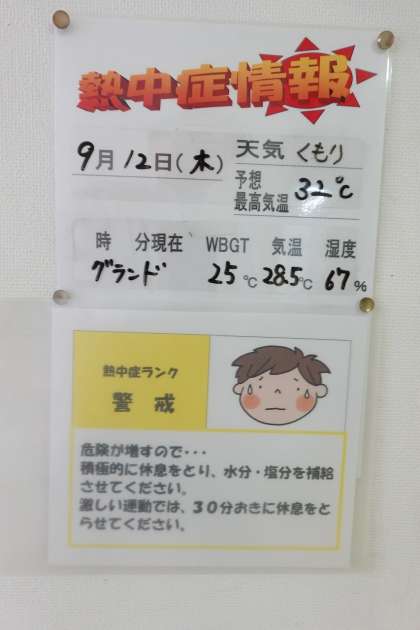 熱中症情報
9月12日(木) 天気 くもり
予想最高気温 32℃
時 分現在 WBGT 気温 湿度
グランド 25℃ 28.5℃ 67%
熱中症ランク
警戒
危険が増すので・・・
積極的に休息をとり、水分・塩分を補給
させてください。
激しい運動では、30分おきに休息をと
らせてください。